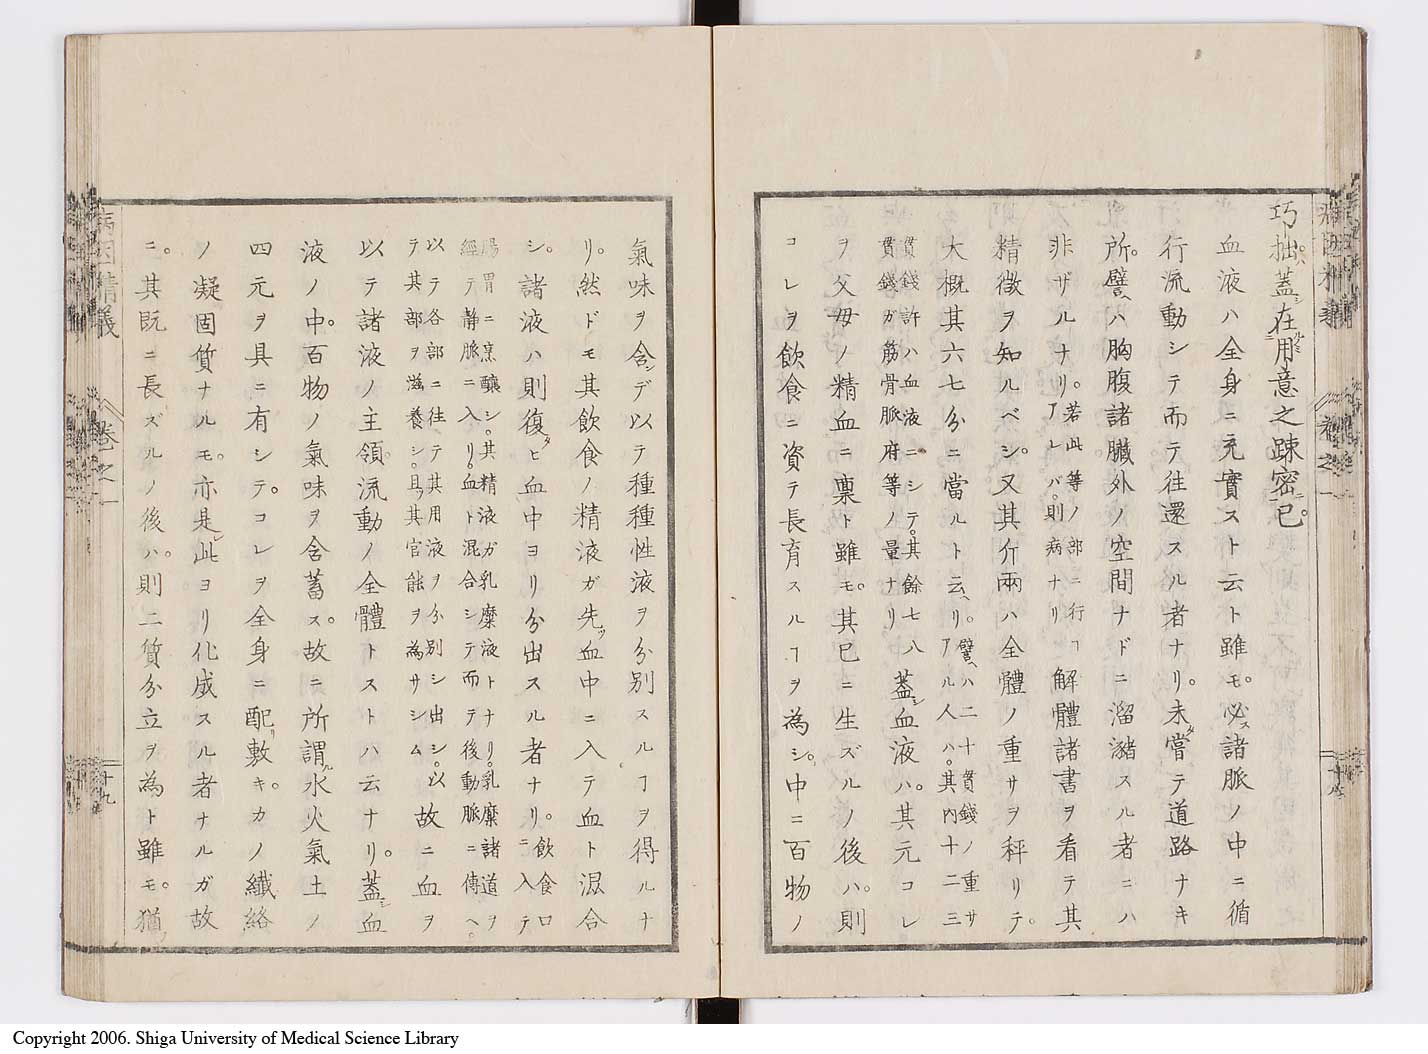 巧拙。蓋在用意之疎密已。
血液ハ全身ニ充實スト云ト雖モ。必ス諸脈ノ中ニ循
行流動シテ而テ往還スル者ナリ。未嘗テ道路ナキ
所。譬ハ胸腹諸臓外ノ空間ナドニ溜瀦スル者ニハ
非ザルナリ。若此等ノ部ニ行ヿアレバ。則病ナリ解體諸書ヲ看テ其
精徵ヲ知ルベシ。又其斤兩ハ全體ノ重サヲ秤リテ。
大概其六七分ニ當ルト云ヘリ。譬ハ二十貫錢ノ重サアル人ハ。其内十二三
貫錢許ハ血液ニシテ。其餘七八貫錢ガ筋骨脈府等ノ量ナリ蓋血液ハ。其元コレ
ヲ父母ノ精血ニ稟ト雖モ。其已ニ生ズルノ後ハ。則
コレヲ飲食ニ資テ長育スルヿヲ為シ。中ニ百物ノ
氣味ヲ含ンデ以テ種種性液ヲ分別スルヿヲ得ルナ
リ。然ドモ其飲食ノ精液ガ先ツ血中ニ入テ血ト混合
シ。諸液ハ則復タヒ血中ヨリ分出スル者ナリ。飲食口ニ入テ
腸胃ニ烹釀シ。其精液ガ乳糜液トナリ。乳糜諸道ヲ經テ静脈ニ入リ。血ト混合シテ而テ後動脈ニ傳ヘ。
以テ各部ニ往テ其用液ヲ分別シ出シ。以テ其部ヲ滋養シ。且其官能ヲ為サシム故ニ血ヲ
以テ諸液ノ主領。流動ノ全體トストハ云ナリ。蓋シ血
液ノ中。百物ノ氣味ヲ含蓄ス。故ニ所謂水火氣土ノ
四元ヲ具ニ有シテ。コレヲ全身ニ配リ敷キ。カノ纖絡
ノ凝固質ナルモ。亦是レ此ヨリ化成スル者ナルガ故
ニ。其既ニ長ズルノ後ハ。則二質分立ヲ為ト雖モ。猶
病因精義
卷之一
十九